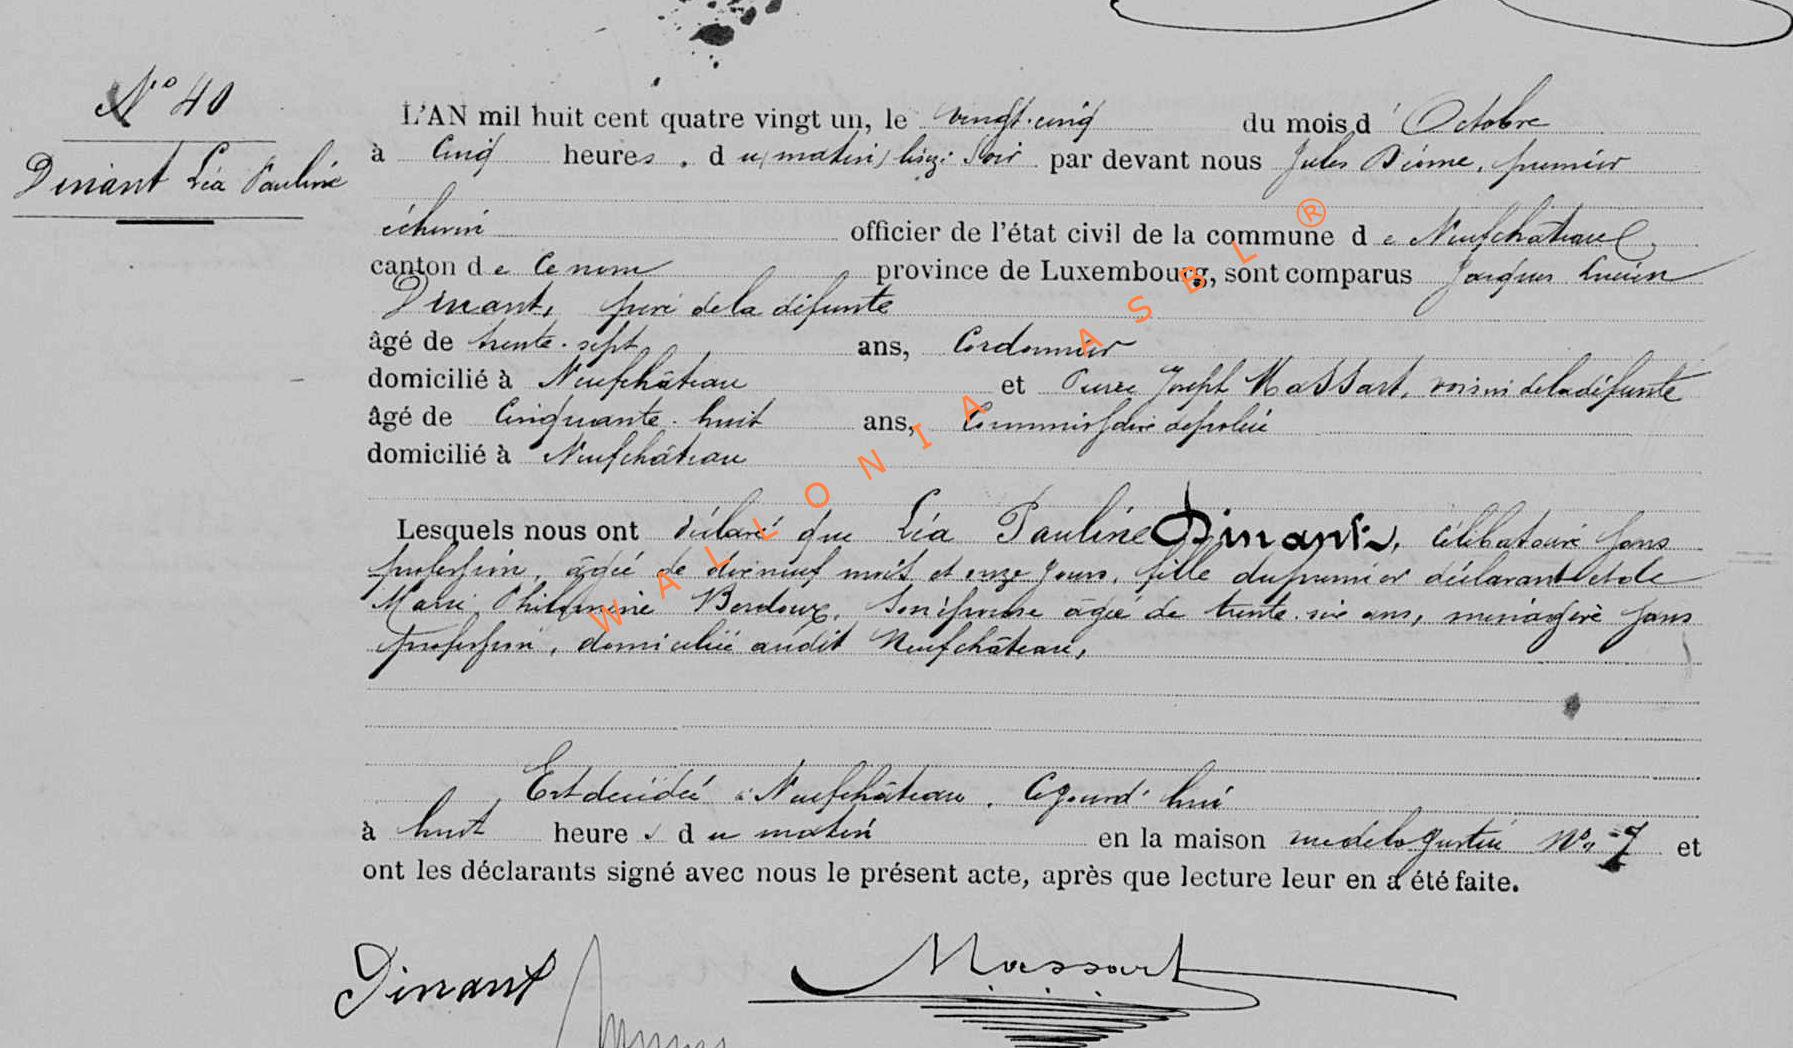 N° 40
Dinant Léa Pauline
L'AN mil huit cent quatre vingt un, le vingt-cinq du mois d'Octobre
à Cinq heures, du (matin) lisez: Soir par devant nous Jules premier
échevin officier de l'état civil de la commune de Neufchâteau,
canton de Ce nom province de Luxembourg, sont comparus Jacques Lucien
Dinant, père de la défunte
âgé de trente-sept ans, Cordonnier
domicilié à Neufchâteau et Pierre Joseph Massart, voisin de la défunte
âgé de Cinquante-huit ans, Commissaire de police
domicilié à Neufchâteau
Lesquels nous ont déclaré que Léa Pauline Dinant, célibataire sans
profession, âgée de dix neuf mois et onze jours, fille du premier déclarant et de
Marie Philomène son épouse âgée de trente-six ans, ménagère sans
profession, domiciliée audit Neufchâteau,
Est décédée à Neufchâteau, Cejourd'hui
à huit heures du matin en la maison rue de la Justice N° 7 et
ont les déclarants signé avec nous le présent acte, après que lecture leur en a été faite.
Dinant Massart
WALLONIA ASBL ®